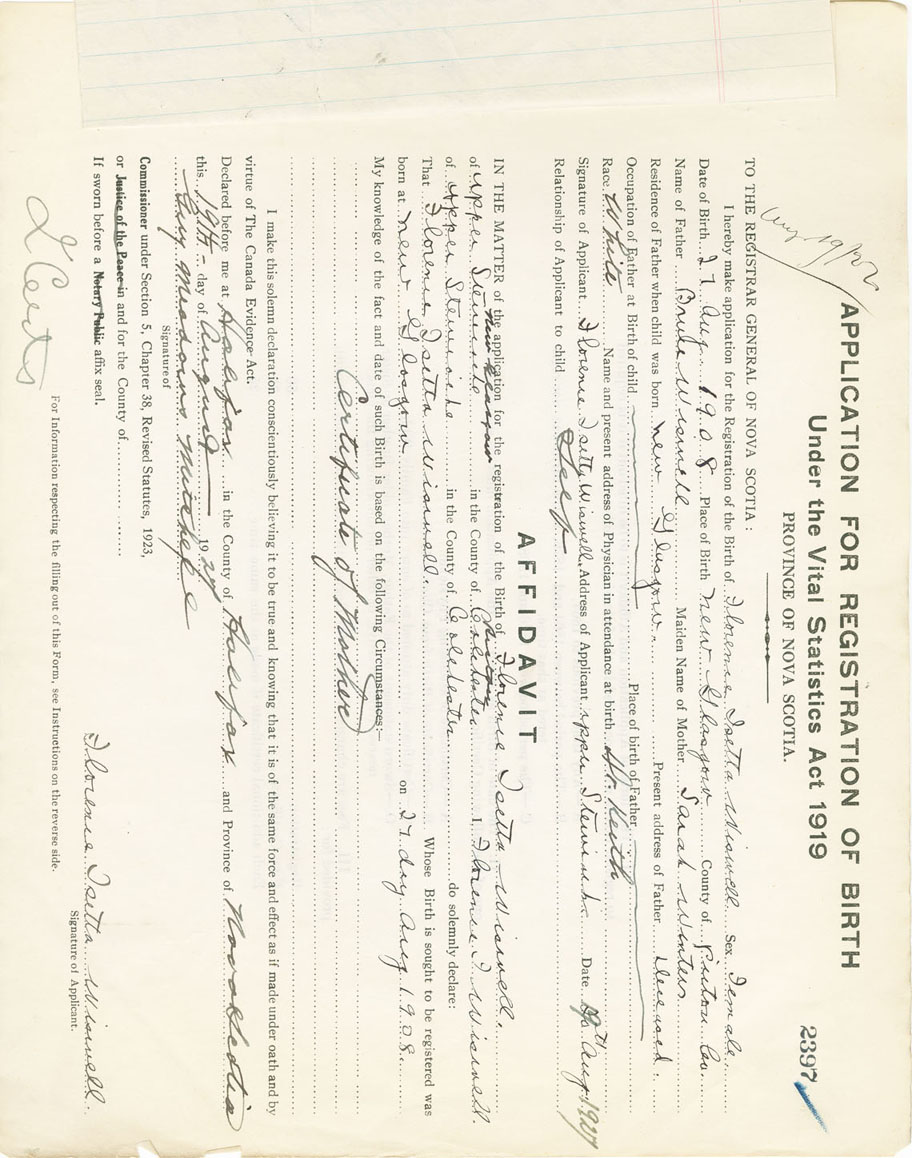 2397
APPLICATION FOR REGISTRATION OF BIRTH
Under the Vital Statistics Act 1919
PROVINCE OF NOVA SCOTIA.
TO THE REGISTRAR GENERAL OF NOVA SCOTIA:
I hereby make application for the Registration of the Birth of Florence Isetta Wiswell Sex Female
Date of Birth 27 Aug 1908 Place of Birth New Glasgow County of Pictou Co.
Name of Father Wiswell Maiden Name of Mother Sarah Winters
Residence of Father when child was born New Glasgow Present address of Father Deceased
Occupation of Father at Birth of child Place of birth of Father
Race White Name and present address of Physician in attendance at birth Dr. Keith
Signature of Applicant Florence Isetta Wiswell Address of Applicant Upper Stewiacke Date 19th Aug. 1927
Relationship of Applicant to child Self
AFFIDAVIT
IN THE MATTER of the application for the registration of the Birth of Florence Isetta Wiswell.
of Upper Stewiacke New Glasgow in the County of Colchester Pictou I, Florence I Wiswell
of Upper Stewiacke in the County of Colchester do solemnly declare:
That Florence Isetta Wiswell. Whose Birth is sought to be registered was
born at New Glasgow on 27 day Aug 1908.
My knowledge of the fact and date of such Birth is based on the following Circumstances:—
Certificate of Mother
I make this solemn declaration conscientiously believing it to be true and knowing that it is of the same force and effect as if made under oath and by
virtue of The Canada Evidence Act.
Declared before me at Halifax in the County of Halifax and Province of Nova Scotia
this 19th day of August 1927
Florence Isetta Wiswell.
Signature of Applicant.
Signature of
Commissioner under Section 5, Chapter 38, Revised Statutes, 1923,
or Justice of the Peace in and for the County of
If sworn before a Notary Public affix seal.
For Information respecting the filling out of this Form, see Instructions on the reverse side.